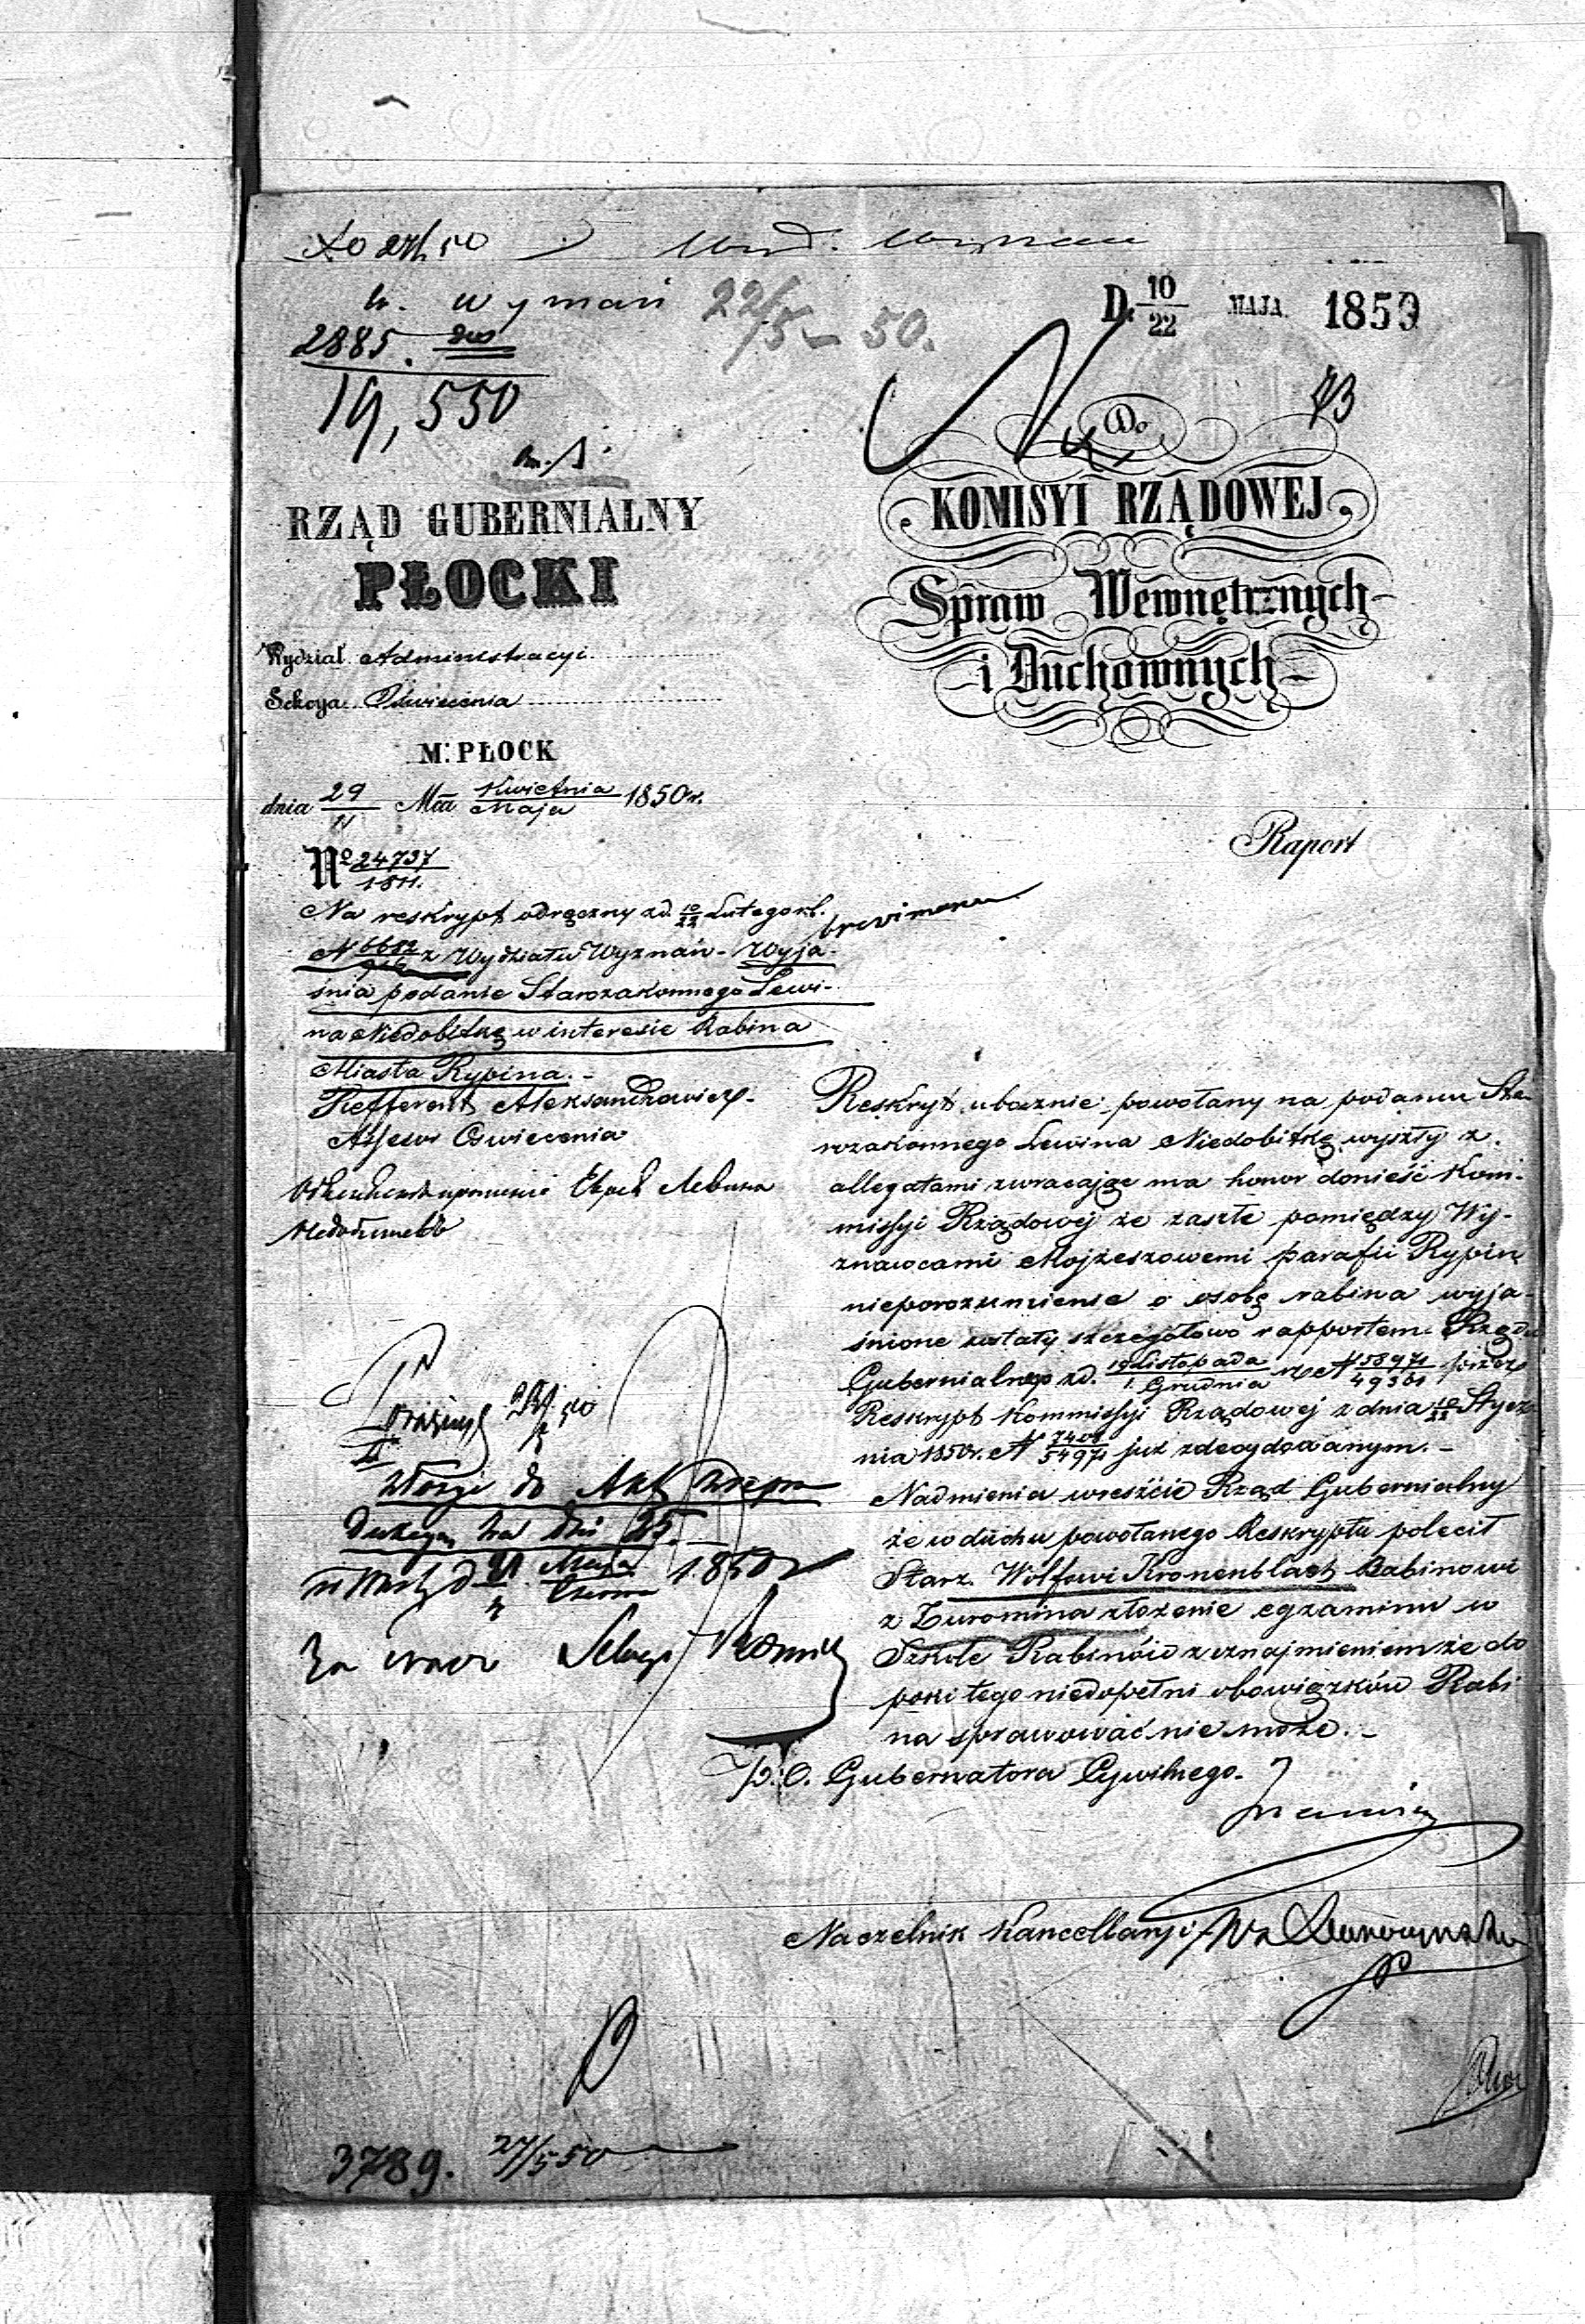 W. Wyznań 22/5 - 50.
2885.
19,550
D. 10/22 MAJA 1850
Do
KOMISYI RZĄDOWEJ
Spraw Wewnętrznych
i Duchownych
RZĄD GUBERNIALNY
PŁOCKI
Wydział Administracyi
Sekcya Oświecenia
M. PŁOCK
dnia 29/11 Mca Kwietnia/Maja 1850 r.
No 24737/1811.
Raport
Na reskrypt odręczny z d. 10/22 Lutego r.b.
N 6682 z Wydziału Wyznań - Wyja-
śnia podanie Starozakonnego Lewi-
na Niedobitkę w interesie Rabina
Miasta Rypina. -
Refferent Aleksandrowicz.
Assesor Oświecenia
Reskrypt ubocznie powołany na podaniu Sta-
rozakonnego Lewina Niedobitkę wyszły z
allegatami zwracając ma honor donieść Kom-
missyi Rządowej że zaszłe pomiędzy Wy-
znawcami Mojżeszowemi parafii Rypin
nieporozumienie o osobę rabina wyja-
śnione zostały szczegółowo rapportem Rządu
Gubernialnego z d. 19 Listopada/1. Grudnia N 58971/49361 przez
Reskrypt Kommissyi Rządowej z dnia 10/22 Stycz-
nia 1850 r. N 7401/54971 już zdecydowanym. -
Nadmienia wreszcie Rząd Gubernialny
że w duchu powołanego Reskryptu polecił
Starz. Wolfowi Kronenblach Rabinowi
z Żuromina złożenie egzaminu w
Szkole Rabinów z oznajmieniem że do
póki tego niedopełni obowiązków Rabi
na sprawować nie może. -
P.O. Gubernatora Cywilnego.
Naczelnik Kancellaryi
Włożyć do Akt
na dni 25.
Maja 1850 r
3789. 27/5 50